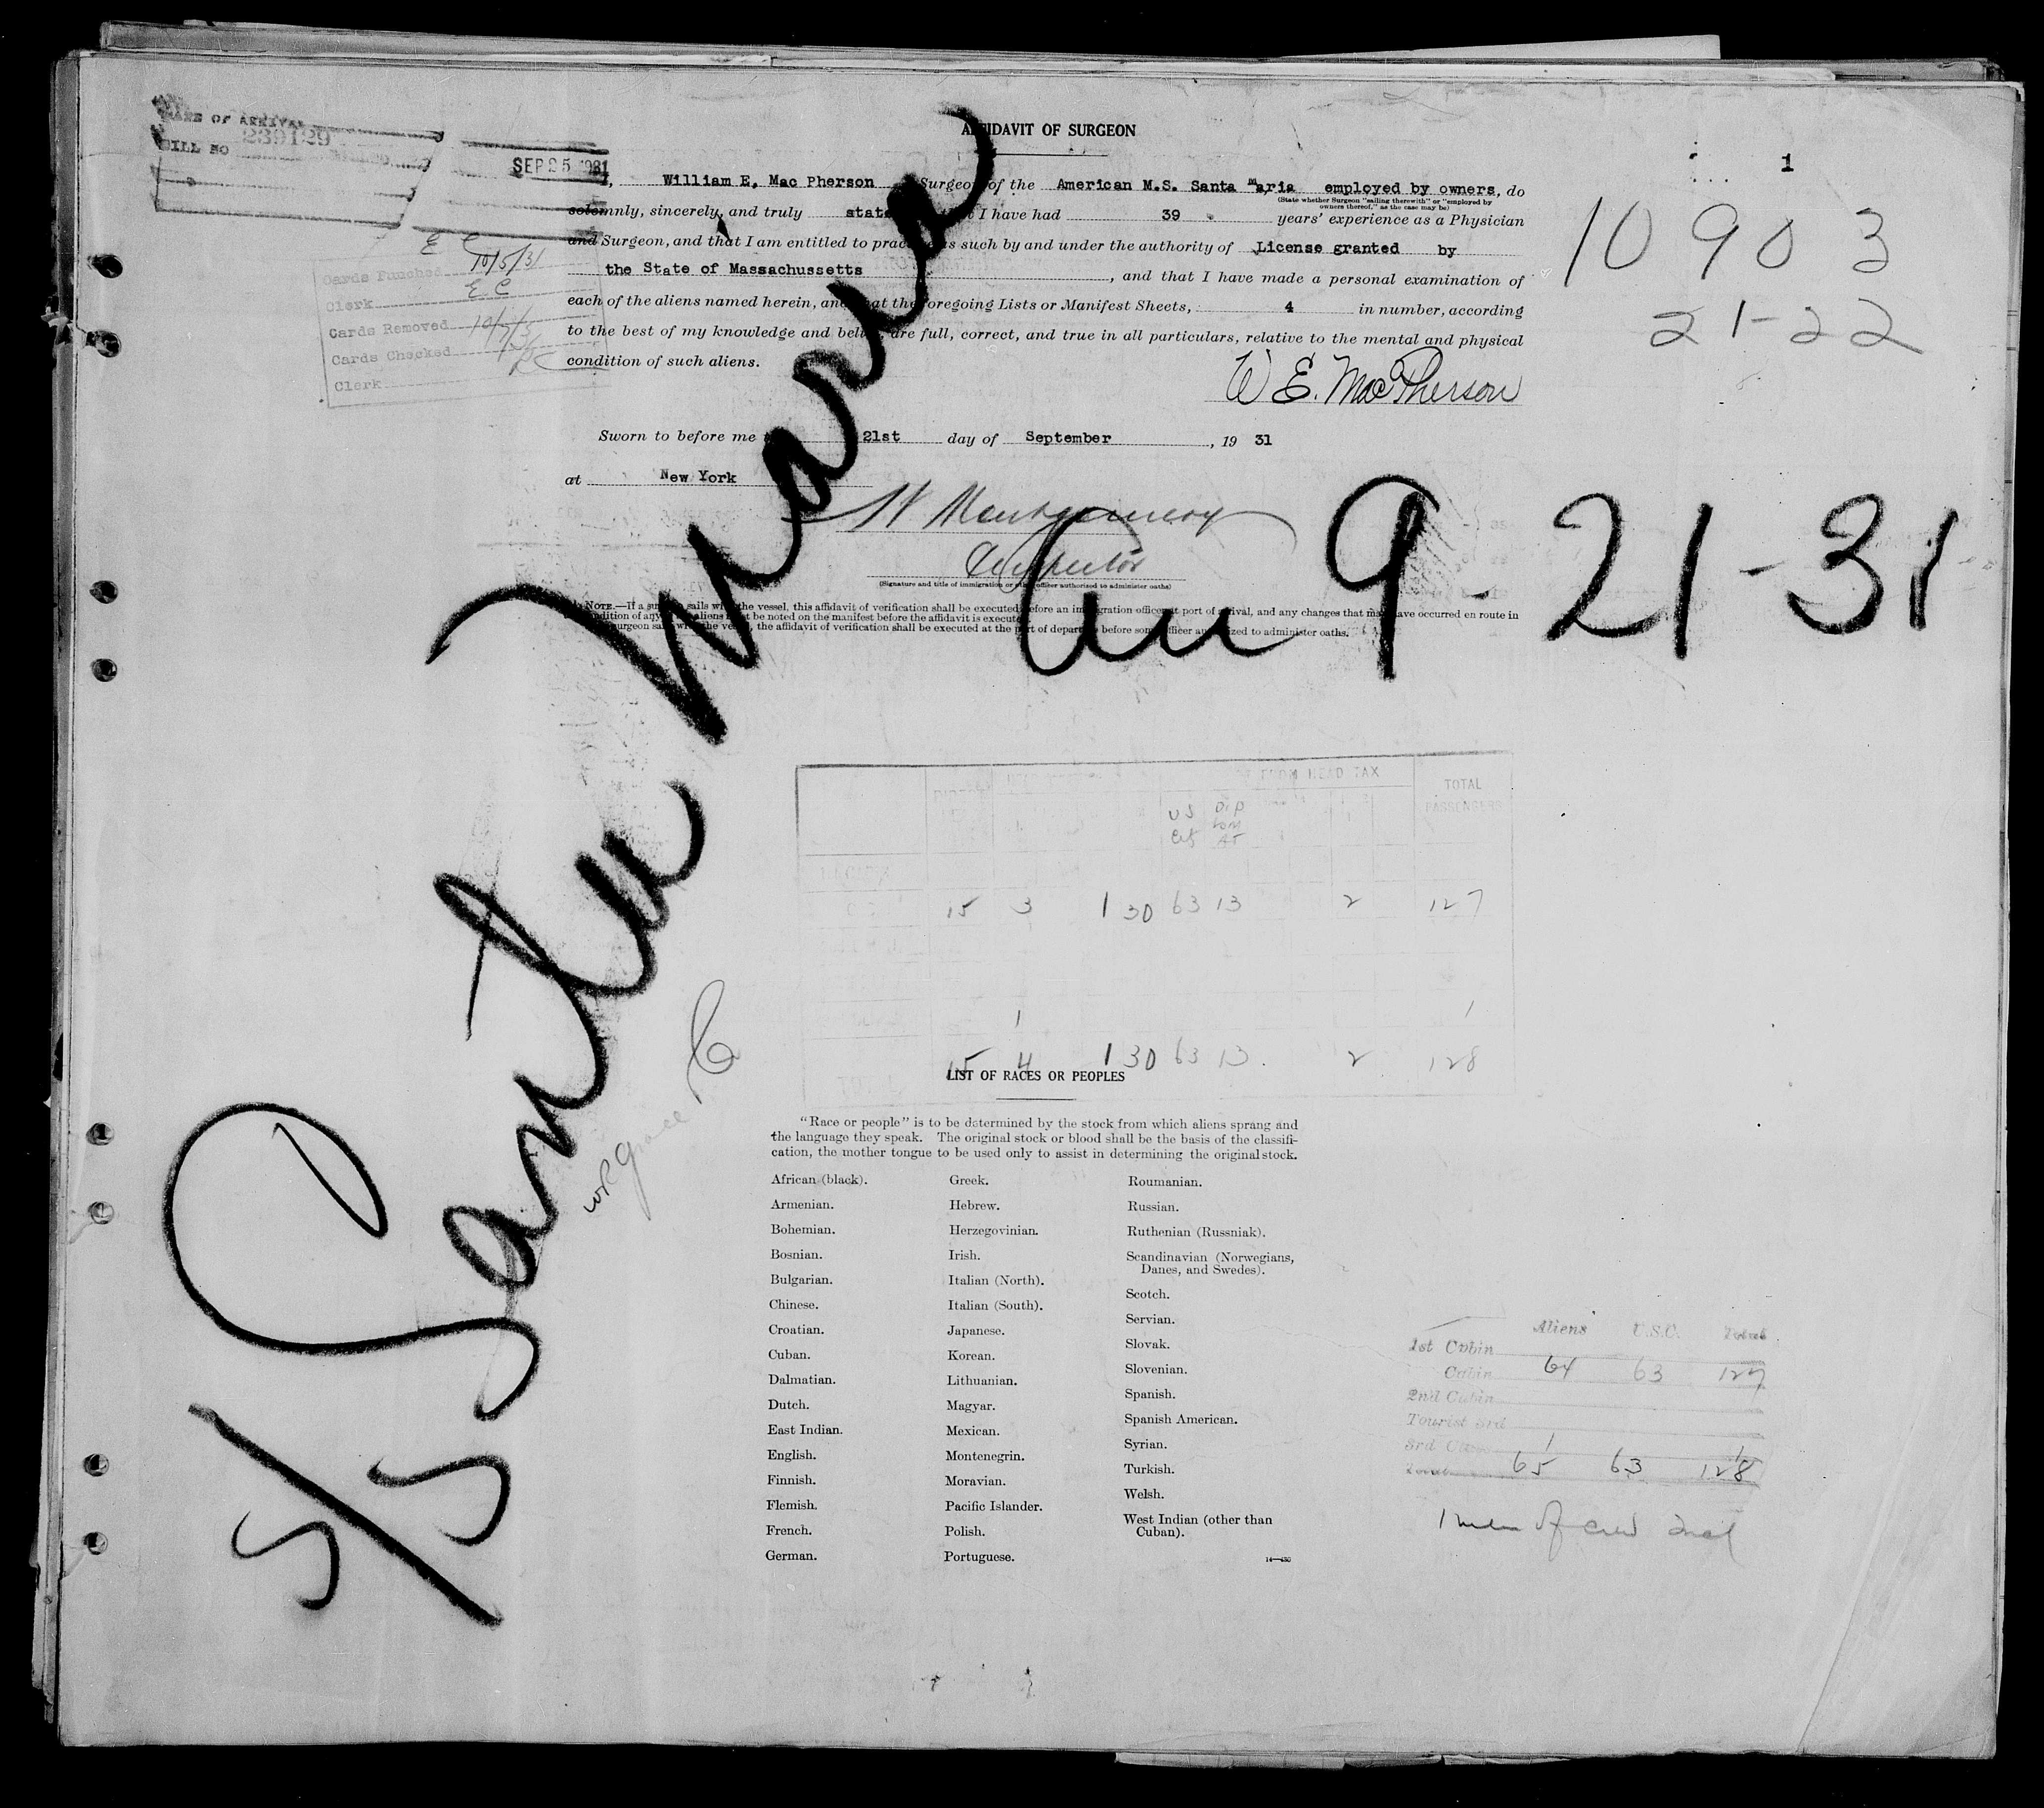 OF ARRIVAL
BILL NO 239129
SEP 25 1931
E C
Cards Punched 10/5/31
Clerk E C
Cards Removed 10/7/31
Cards Checked
Clerk
AFFIDAVIT OF SURGEON
1
I, William E, Mac Pherson Surgeon of the American M.S. Santa maria employed by owners, do
(State whether Surgeon "sailing therewith" or "employed by
owners thereof," as the case may be)
solemnly, sincerely, and truly state I have had 39 years' experience as a Physician
and Surgeon, and that I am entitled to practice as such by and under the authority of License granted by
the State of Massachussetts, and that I have made a personal examination of
each of the aliens named herein, and that the foregoing Lists or Manifest Sheets, 4 in number, according
to the best of my knowledge and belief, are full, correct, and true in all particulars, relative to the mental and physical
condition of such aliens.
10903
21-22
W E. MacPherson
Sworn to before me 21st day of September, 19 31
at New York
W Montgomery
Inspector
(Signature and title of immigration or other officer authorized to administer oaths)
NOTE.—If a surgeon sails with the vessel, this affidavit of verification shall be executed before an immigration officer at port of arrival, and any changes that may have occurred en route in
the condition of any aliens must be noted on the manifest before the affidavit is executed
surgeon sails with the vessel, the affidavit of verification shall be executed at the port of departure before some officer authorized to administer oaths.
S/S Santa Maria
9-21-31
FROM HEAD TAX
TOTAL
PASSENGERS
US Dip
Cit lom
AT
15 3 1 30 63 13 2 127
1 1
15 4 1 30 63 13. 2 128
WR Grace Co
LIST OF RACES OR PEOPLES
"Race or people" is to be determined by the stock from which aliens sprang and
the language they speak. The original stock or blood shall be the basis of the classifi-
cation, the mother tongue to be used only to assist in determining the original stock.
African (black).
Armenian.
Bohemian.
Bosnian.
Bulgarian.
Chinese.
Croatian.
Cuban.
Dalmatian.
Dutch.
East Indian.
English.
Finnish.
Flemish.
French.
German.
Greek.
Hebrew.
Herzegovinian.
Irish.
Italian (North).
Italian (South).
Japanese.
Korean.
Lithuanian.
Magyar.
Mexican.
Montenegrin.
Moravian.
Pacific Islander.
Polish.
Portuguese.
Roumanian.
Russian.
Ruthenian (Russniak).
Scandinavian (Norwegians,
Danes, and Swedes).
Scotch.
Servian.
Slovak.
Slovenian.
Spanish.
Spanish American.
Syrian.
Turkish.
Welsh.
West Indian (other than
Cuban).
14—430
Aliens U.S.C. Total
1st Cabin
Cabin 64 63 127
2nd Cabin
Tourist 3rd
3rd Class 1 1
Total 65 63 128
1 of crew incl